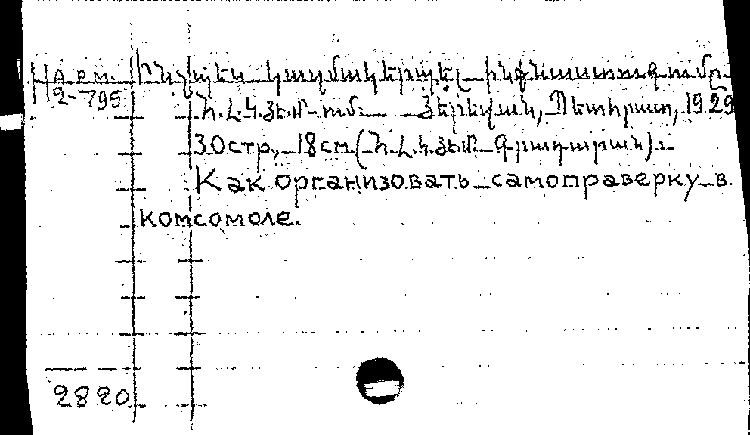 Арм. Ինչպես կազմակերպել ինքնաստուգումը
2-795 Հ.Լ.Կ.Յե.Մ-ում. Յերեվան, Պետհրատ, 1929
30стр., 18см (Հ.Լ.Կ.Յե.Մ. Գրադարան).
Как организовать самоправерку в
комсомоле.
2820